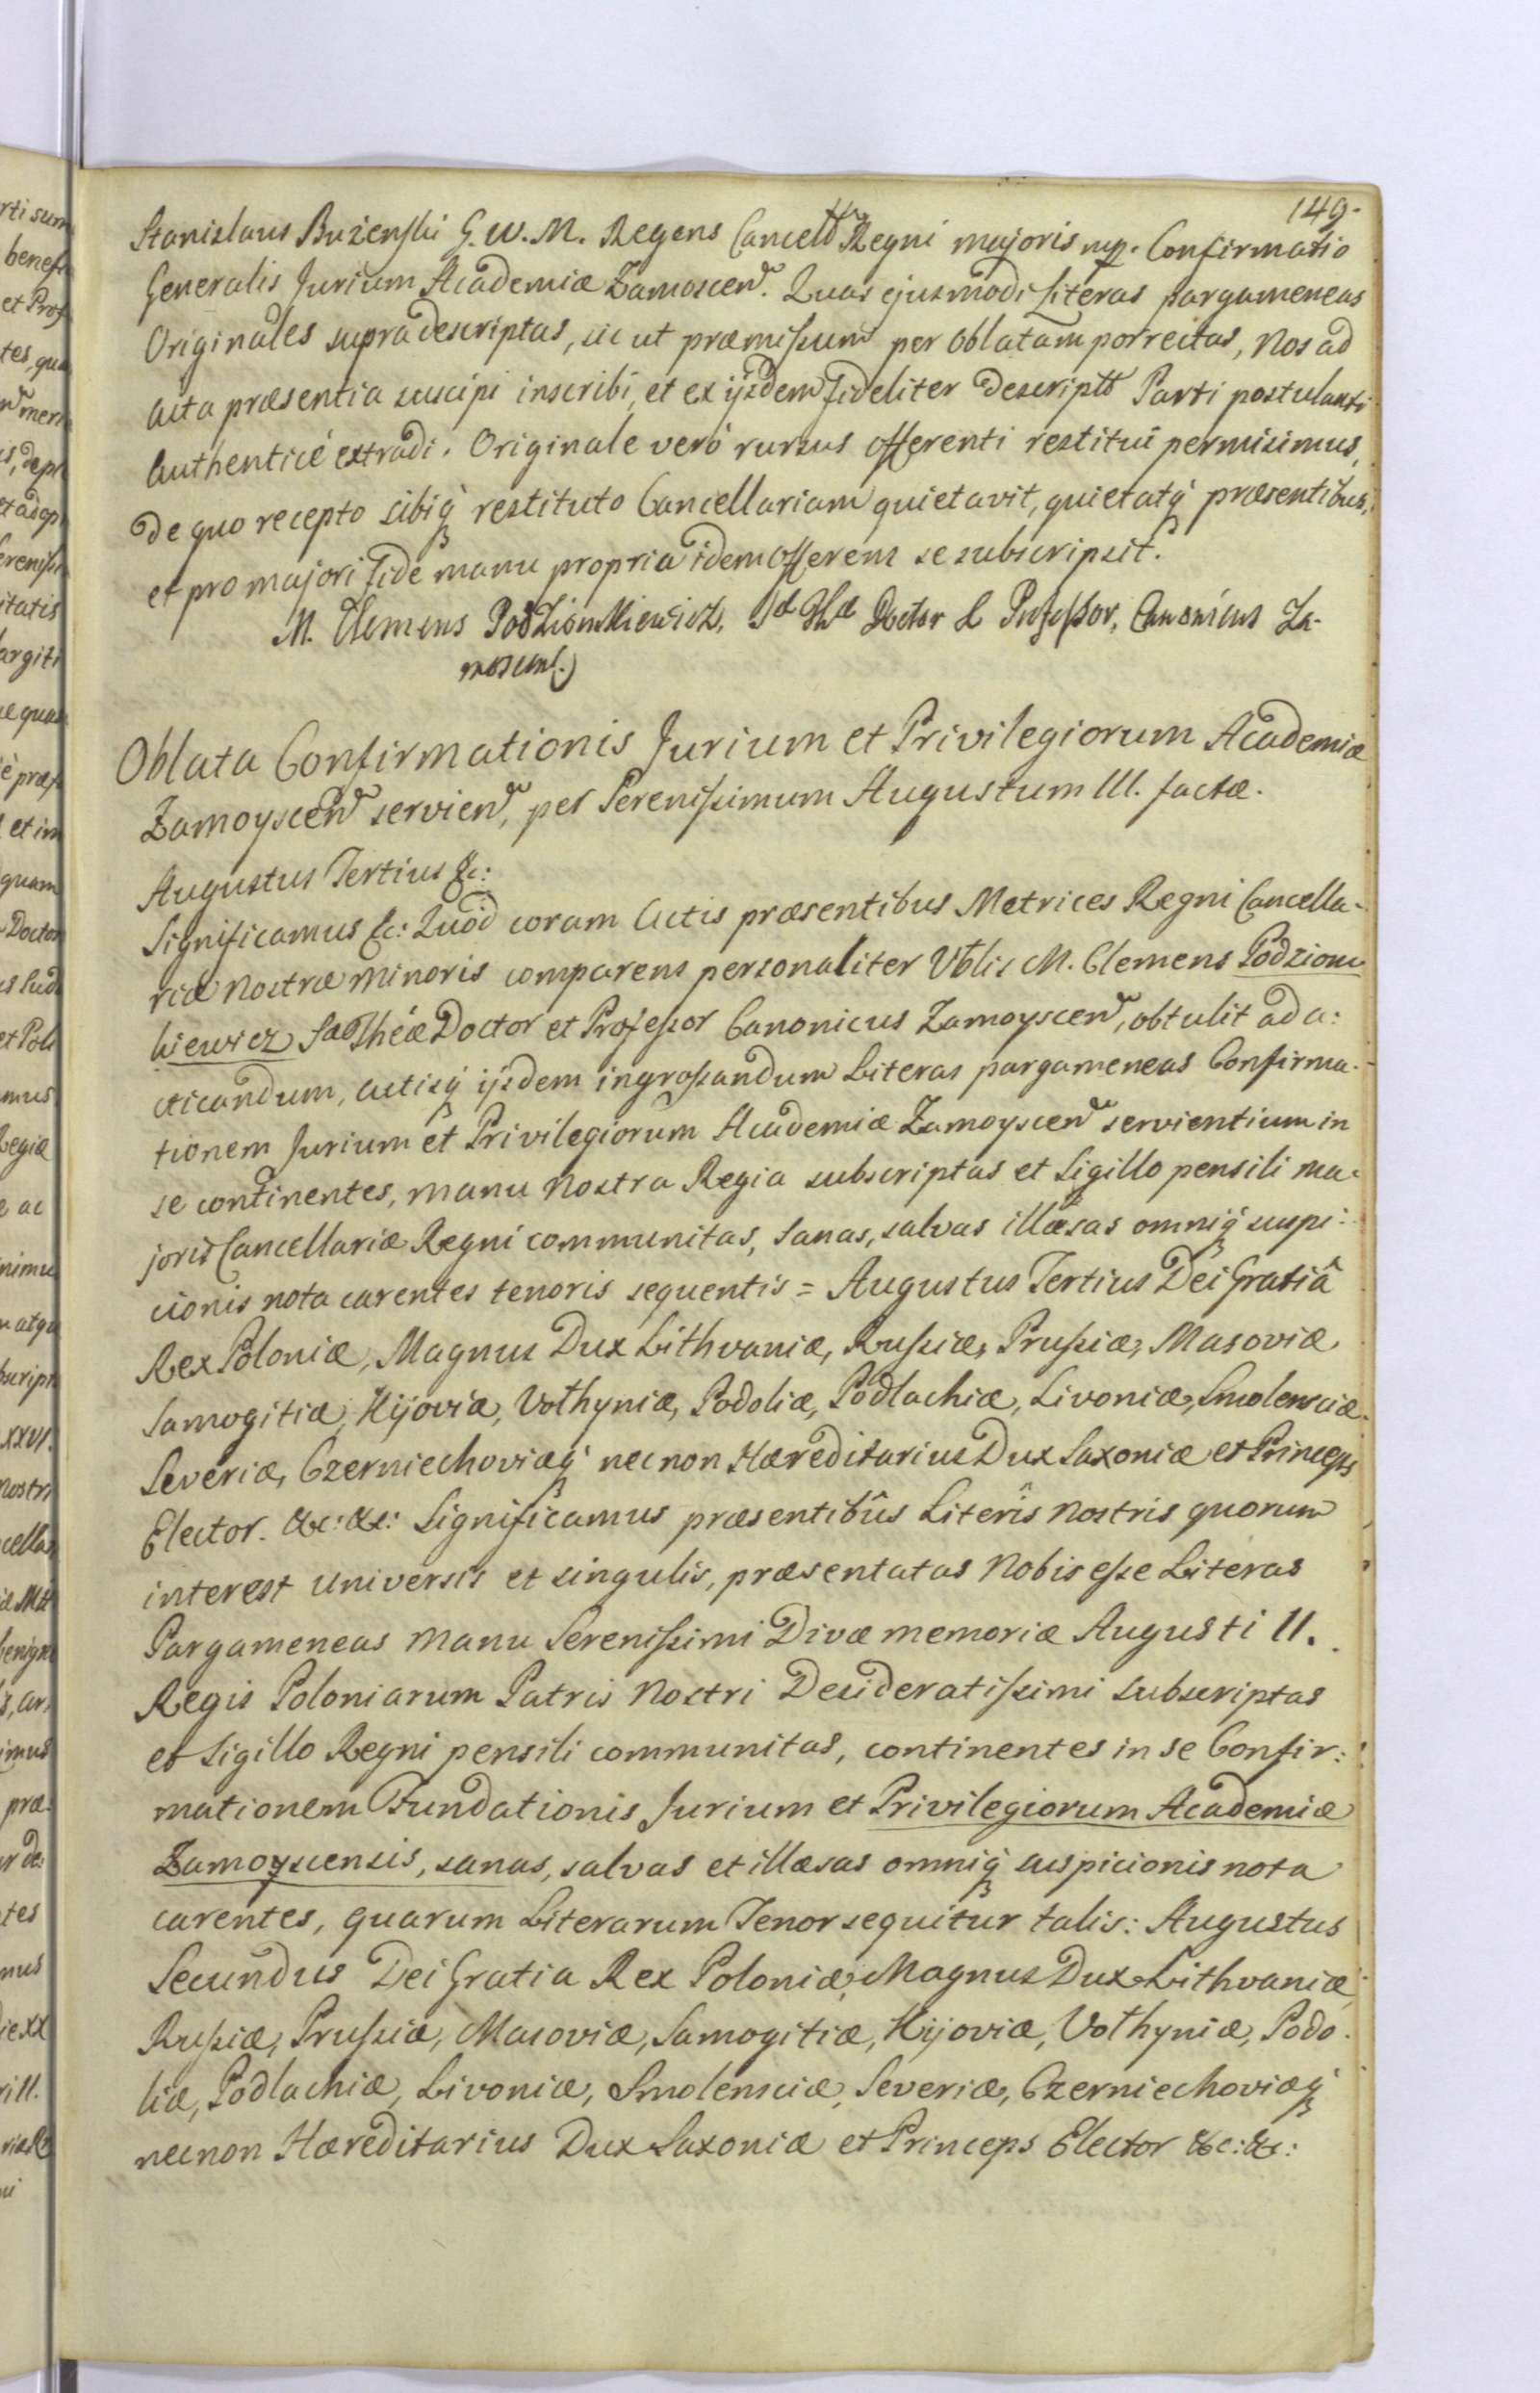 149.
Stanislaus Bużenski G. W. M. Regens Cancell Regni majoris mp. Confirmatio
Generalis Jurium Academiæ Zamoscen. Quas ejusmodi Literas pargameneas
Originales supradescriptas, sic ut præmissum per oblatam porrectas, Nos ad
Acta præsentia suscipi inscribi, et ex ijsdem fideliter descriptt Parti postulanti
authenticè extradi. Originale verò rursus offerenti restitui permisimus,
de quo recepto sibiq restituto Cancellariam quietavit, quietatq præsentibus,
et pro majori fide manu propria idem offerens se subscripsit.
M. Clemens Podzionkiewicz, Sæ Thæ Doctor & Professor, Canonicus Za-
moscens.)
Oblata Confirmationis Jurium et Privilegiorum Academiæ
Zamoyscen servien, per Serenissimum Augustum III. factæ.
Augustus Tertius &c:
Significamus &c: Quod coram Actis præsentibus Metrices Regni Cancella-
riæ Nostræ Minoris comparens personaliter Vblis M. Clemens Podzion
kiewicz Sæ Theæ Doctor et Professor Canonicus Zamoyscen, obtulit ad a:
cticandum, actisq ijsdem ingrossandum Literas pargameneas Confirma-
tionem Jurium et Privilegiorum Academiæ Zamoyscen servientium in
se continentes, manu Nostra Regia subscriptas et Sigillo pensili ma-
joris Cancellariæ Regni communitas, sanas, salvas illæsas omniq suspi:
cionis nota carentes tenoris sequentis = Augustus Tertius Dei Gratiâ
Rex Poloniæ, Magnus Dux Lithvaniæ, Russiæ, Prussiæ, Masoviæ
Samogitiæ, Kijoviæ, Volhyniæ, Podoliæ, Podlachiæ, Livoniæ, Smolensciæ.
Severiæ, Czerniechoviæq necnon Hæreditarius Dux Saxoniæ et Princeps
Elector. &c: &c: Significamus præsentibûs Literîs Nostris quorum
interest universis et singulis, præsentatas Nobis esse Literas
Pargameneas Manu Serenissimi Divæ memoriæ Augusti II.
Regis Poloniarum Patris Nostri Desideratissimi subscriptas
et Sigillo Regni pensili communitas, continentes in se Confir:
mationem Fundationis Jurium et Privilegiorum Academiæ
Zamoyscensis, sanas, salvas et illæsas omniq suspicionis nota
carentes, quarum Literarum Tenor sequitur talis: Augustus
Secundus Dei Gratia Rex Poloniæ, Magnus Dux Lithvaniæ,
Russiæ, Prussiæ, Masoviæ, Samogitiæ, Kijoviæ, Volhyniæ, Podo-
liæ, Podlachiæ, Livoniæ, Smolensciæ, Severiæ, Czerniechoviæq
necnon Hæreditarius Dux Saxoniæ et Princeps Elector &c: &c: